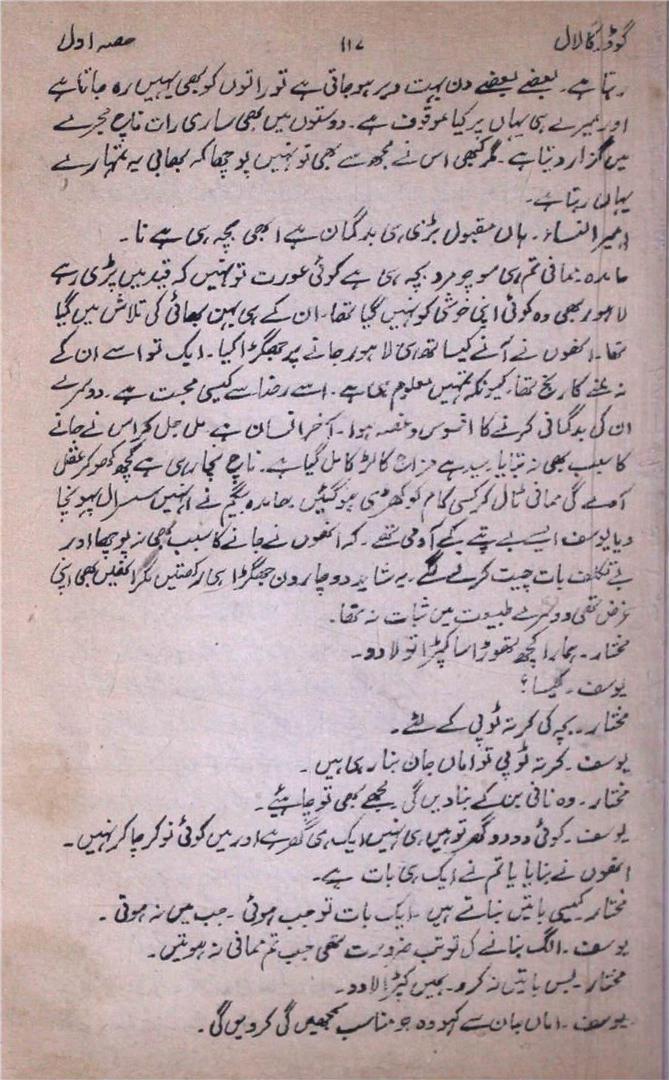 گوڈر کا لال ۱۱۷ حصہ اول
رہتا ہے۔ بعضے بعضے دن بہت دیر ہو جاتی ہے تو راتوں کو بھی یہیں رہ جاتا ہے
اور میرے ہی یہاں پر کیا موقوف ہے۔ دوستوں میں بھی ساری رات ناچ مجرے
میں گزار دیتا ہے۔ مگر کبھی اس نے مجھ سے بھی تو نہیں پوچھا کہ بھابی یہ تمہارے
یہاں رہتا ہے۔
امیر النساء۔ ہاں مقبول بڑی ہی بدگمان ہے ابھی بچہ ہی ہے نا۔
عابدہ۔ ممانی تم ہی سوچو مرد بچہ ہی ہے کوئی عورت تو نہیں کہ قید میں پڑی رہے
لاہور بھی وہ کوئی اپنی خوشی کو نہیں گیا تھا۔ ان کے ہی بہن بھائی کی تلاش میں گیا
تھا۔ انھوں نے آنے کیساتھ ہی لاہور جانے پر جھگڑا کیا۔ ایک تو اسے ان کے
نہ ملنے کا رنج تھا۔ کیونکہ تمہیں معلوم ہی ہے۔ اسے رضا سے کیسی محبت ہے۔ دوسرے
ان کی بدگمانی کرنے کا افسوس و غصہ ہوا۔ آخر انسان ہے مل جل کر اس نے جانے
کا سبب بھی نہ بتایا سید ہے مزاج کا لڑکا مل گیا ہے۔ ناچ نچا رہی ہے کچھ کھو کر عقل
آئے گی ممانی ٹال کر کسی کام کو کھڑی ہو گئیں۔ عابدہ بیگم نے انہیں سسرال پہونچا
دیا یوسف ایسے بے پتے کے آدمی تھے۔ کہ انھوں نے جانے کا سبب بھی نہ پوچھا اور
بے تکلف بات چیت کرنے لگے۔ یہ شاید دو چار دن جھگڑا ہی رکھتیں مگر انھیں بھی اپنی
غرض تھی دوسرے طبیعت میں ثبات نہ تھا۔
مختار۔ ہمارا کچھ تھوڑا سا کپڑا تو لا دو۔
یوسف۔ کیسا؟
مختار۔ بچہ کی کرتہ ٹوپی کے لئے۔
یوسف۔ کرتہ ٹوپی تو اماں جان بنا رہی ہیں۔
مختار۔ وہ نانی بن کے بنا دیں گی مجھے بھی تو چاہئیے۔
یوسف۔ کوئی دو دو گھر تو ہیں ہی نہیں ایک ہی گھر ہے اور میں کوئی نوکر چاکر نہیں۔
انھوں نے بنایا یا تم نے ایک ہی بات ہے۔
مختار۔ کیسی باتیں بناتے ہیں۔ ایک بات تو جب ہوئی۔ جب میں نہ ہوتی۔
یوسف۔ الگ بنانے کی تو تب ضرورت تھی جب تم ممانی نہ ہوتیں۔
مختار۔ بس باتیں نہ کرو۔ ہمیں کپڑا لا دو۔
یوسف۔ اماں جان سے کہو وہ جو مناسب سمجھیں گی کر دیں گی۔